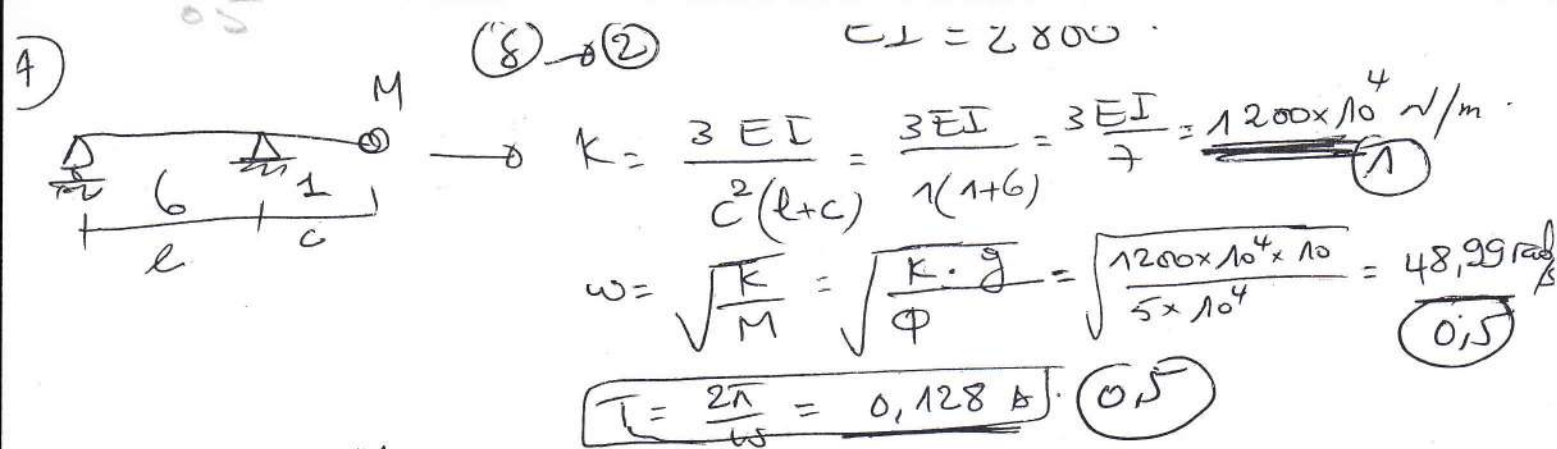 05
1) (8) → (2) EI = 2800.
M
→ K = 3EI / c²(l+c) = 3EI / 1(1+6) = 3EI / 7 = 1200×10⁴ N/m.
(1)
6 1
l c
ω = √(K/M) = √(K.g / P) = √(1200×10⁴×10 / 5×10⁴) = 48,99 rad/s
(0,5)
T = 2π/ω = 0,128 s. (0,5)